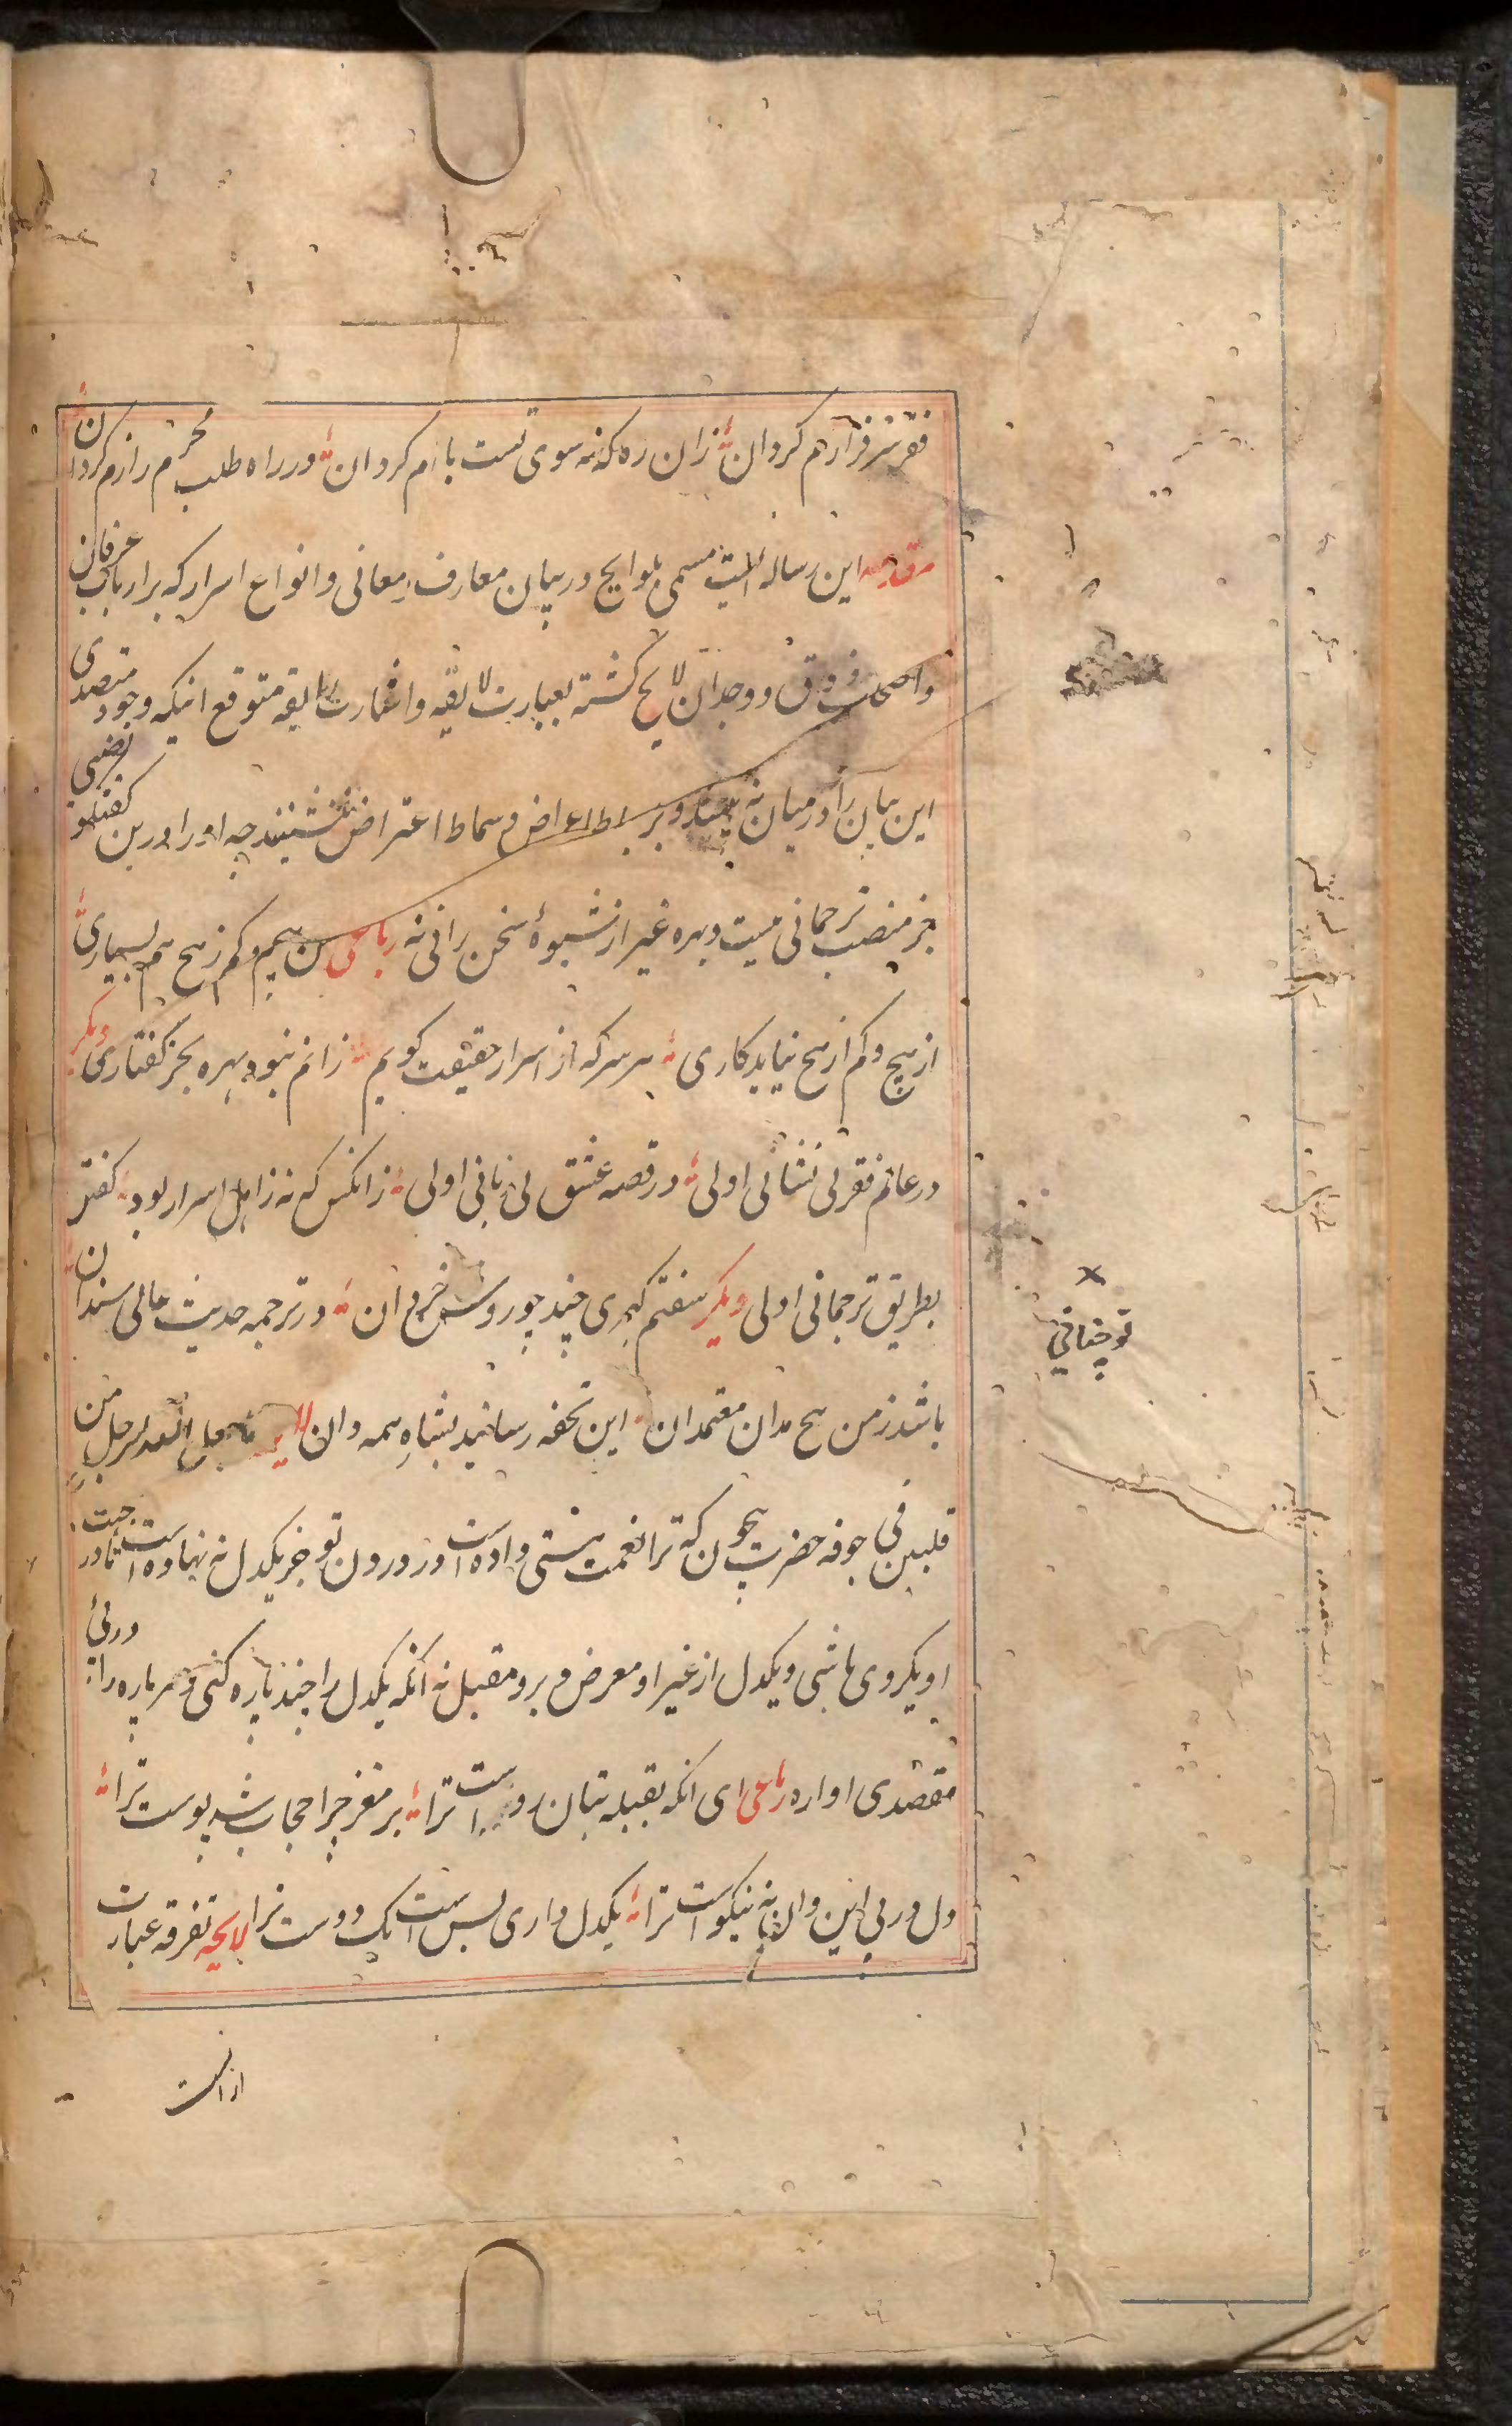 فقر سرفرازم گردان زان ره که نه سوی تست بازم گردان در راه طلب محرم رازم گردان
مقدمه این رساله ایست مسمی بلوایح در بیان معارف معانی و انواع اسرار که بر ارباب عرفان
و اصحاب ذوق و وجدان لایح گشته بعبارت لایقه و اشارت رایقه متوقع انیکه وجود متصدی
این بیان را در میان نه بینند و بر بساط اعراض و سماط اعتراض ننشینند چه او را درین گفتگو نصیبی
جز منصب ترجمانی نیست و بهره غیر از شیوهٔ سخن رانی نه رباعی من هیچم و کم ز هیچ هم بسیاری
از هیچ و کم از هیچ نیاید کاری هر سر که از اسرار حقیقت گویم زانم نبود بهره بجز گفتاری دیگر
در عالم فقر بی نشانی اولی در قصه عشق بی زبانی اولی زانکس که نه ز اهل اسرار بود گفتن
بطریق ترجمانی اولی دیگر سفتم گهری چند چو روشن خردان در ترجمه حدیث عالی سندان
باشد ز من هیچ مدان معتمدان این تحفه رسانید بشاه همه دان لایحه ما جعل الله لرجل من
قلبین فی جوفه حضرت بیچون که ترا نعمت هستی داده است در درون تو جز یکدل نه نهاده است تا در
او یکروی باشی و یکدل از غیر او معرض و برو مقبل نه آنکه یکدل را چند پاره کنی و هر پاره را در پی
مقصدی اواره رباعی ای آنکه بقبله بتان روست ترا بر مغز چرا حجاب شد پوست ترا
دل در پی این و آن نه نیکوست ترا یکدل داری بس است یک دوست ترا لایحه تفرقه عبارت
از انست